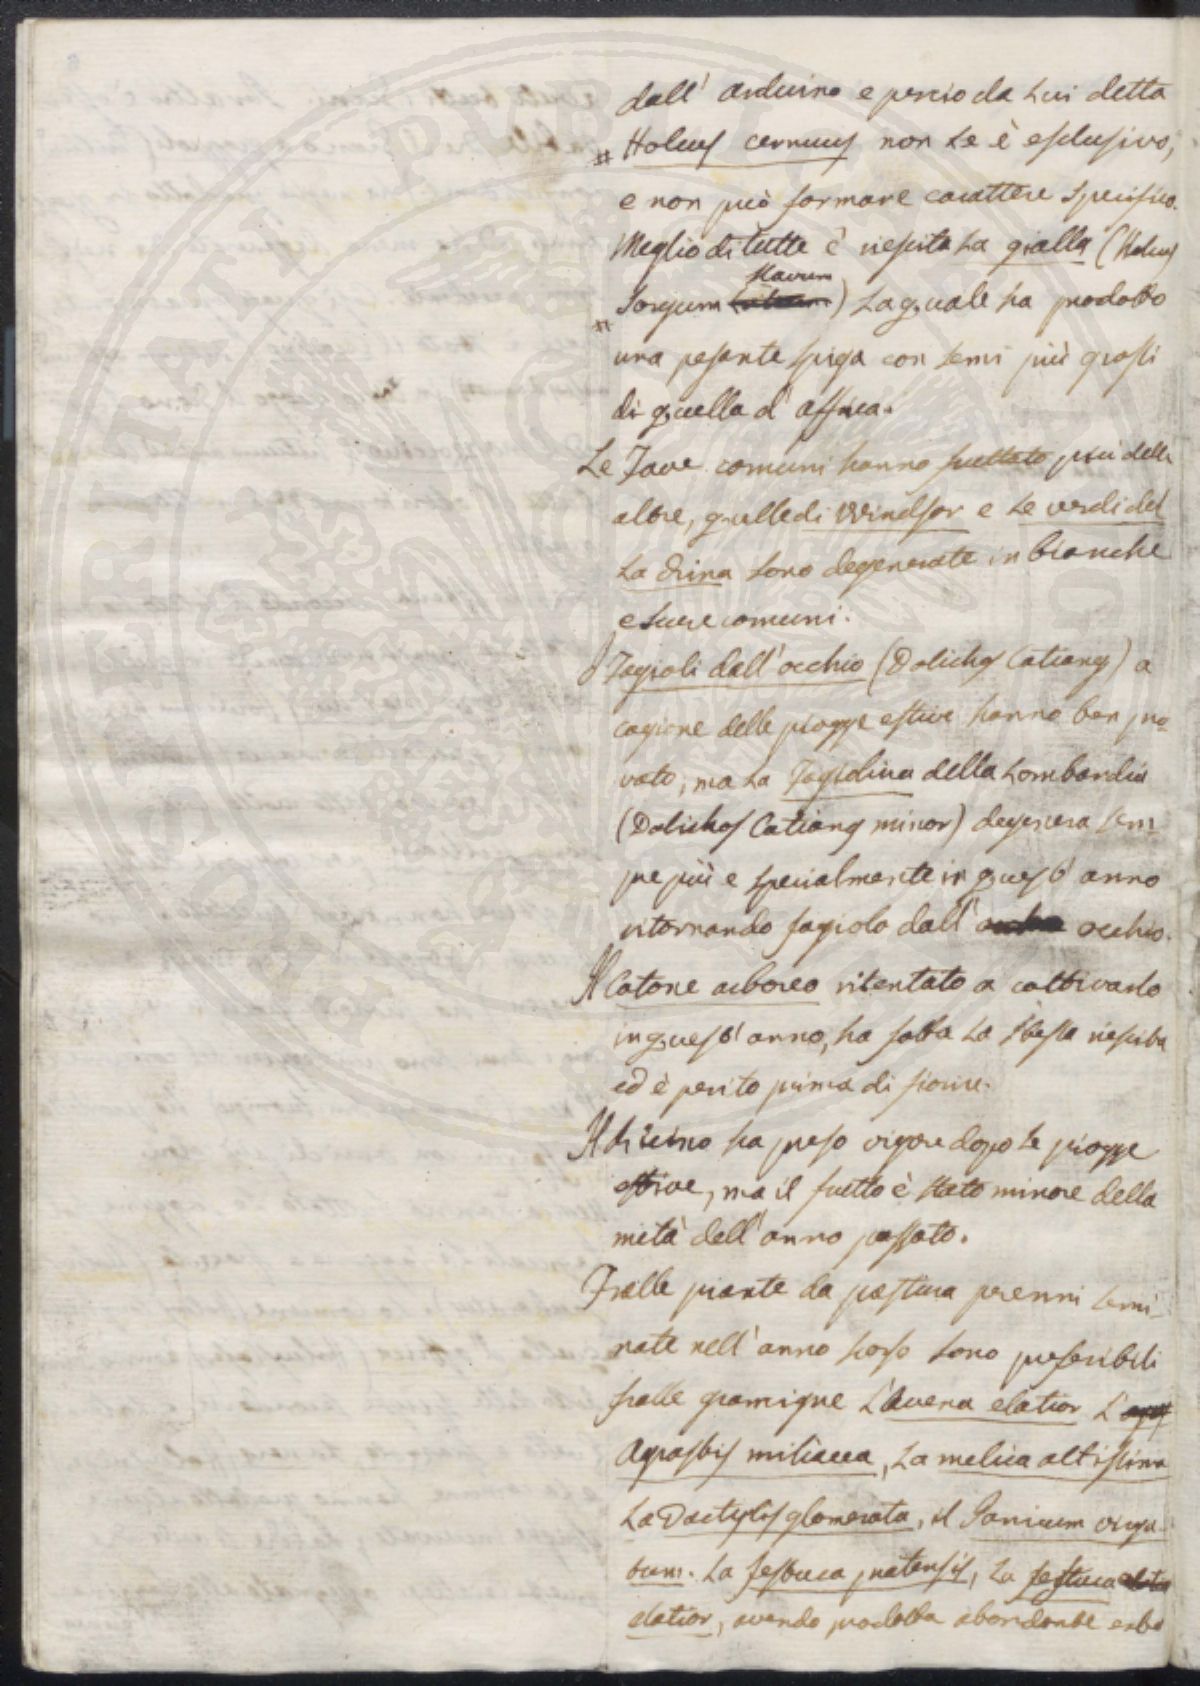 dall' arduino e perciò da Lui detta
# Holcus cernuus non Le è esclusivo,
e non può formare carattere specifico.
Meglio di tutte è riescita La gialla (Holcus
flavum
# Sorgum ) La quale ha prodotto
una pesante spiga con semi più grossi
di quella d' affrica.
Le Fave comuni hanno fruttato più delle
altre, quelle di Windsor e Le verdi del
La China sono degenerate in bianche
e scure comuni.
I Fagioli dall' occhio (Dolichos Catiang) a
cagione delle piogge estive hanno ben pro-
vato, ma La Fagiolina della Lombardia
(Dolichos Catiang minor) degenera sem-
pre più e specialmente in quest' anno
ritornando fagiolo dall' occhio.
Il Cotone arboreo ritentato a coltivarlo
in quest' anno, ha fatta La stessa riescita
ed è perito prima di fiorire.
Il Ricino ha preso vigore dopo Le piogge
estive, ma il frutto è stato minore della
metà dell' anno passato.
Fralle piante da pastura perenni semi-
nate nell' anno scorso sono preferibili
fralle gramigne L'Avena elatior L'
Agrostis miliacea, La melica altissima
La Dactylis glomerata, il Panicum virga-
tum. La festuca pratensis, La festuca
elatior, avendo prodotta abondante erba